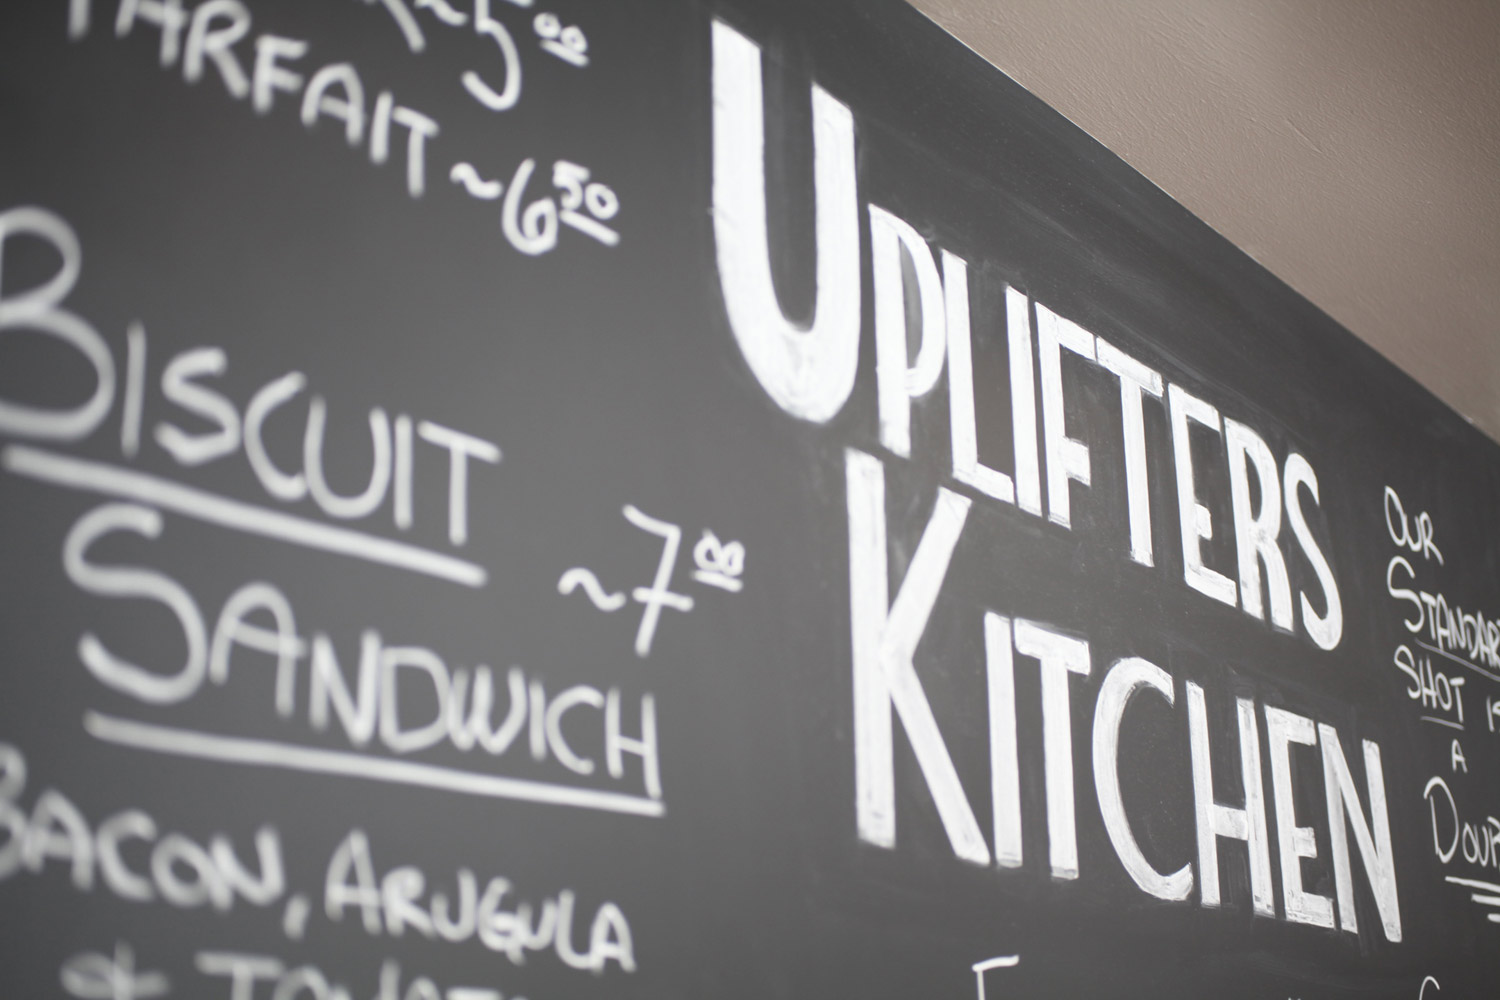 ~5⁰⁰
PARFAIT ~6⁵⁰
BISCUIT
SANDWICH ~7⁰⁰
BACON, ARUGULA
&
UPLIFTERS
KITCHEN
OUR
STANDAR
SHOT IS
A
DOUB